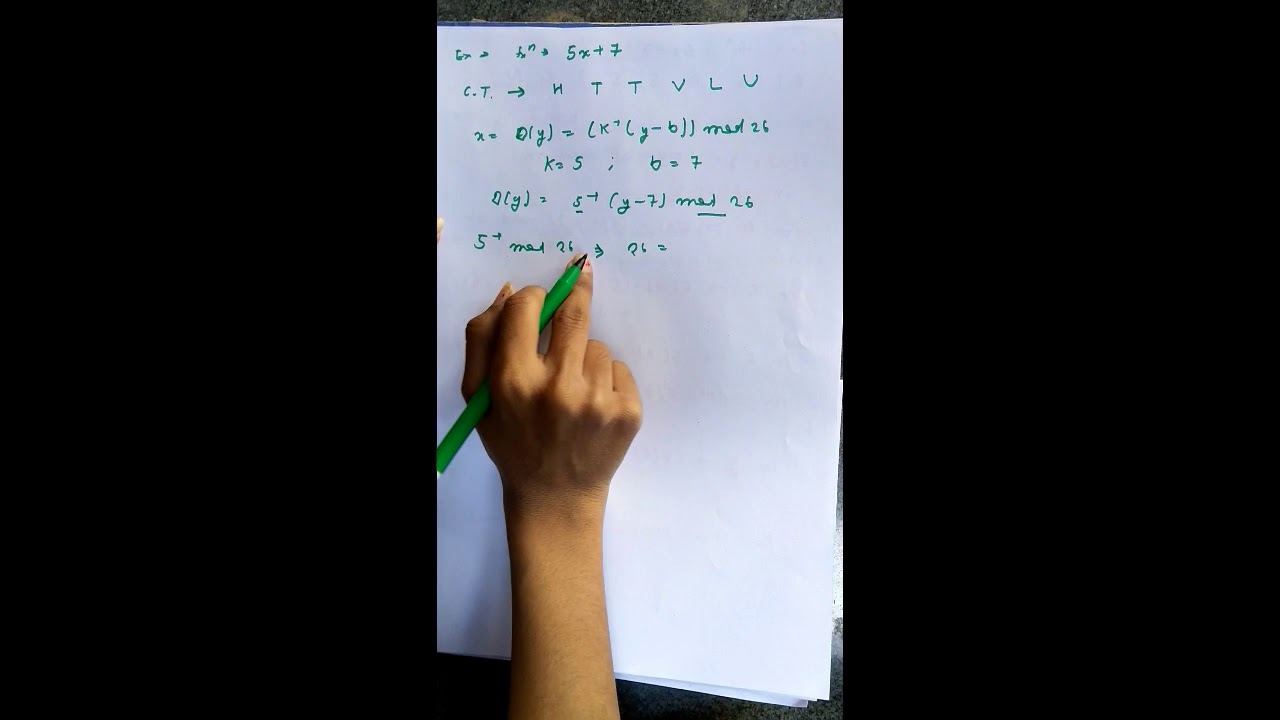 Ex → fⁿ → 5x+7
C.T. → H T T V L U
x = D(y) = (K⁻¹(y-b)) mod 26
K=5 ; b=7
D(y) = 5⁻¹ (y-7) mod 26
5⁻¹ mod 26 ⇒ 26 =